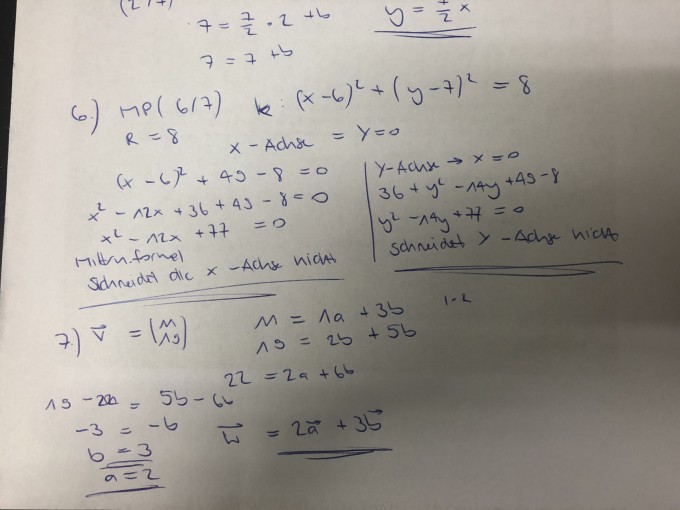 (2/7)
7 = 7/2 · 2 + b
y = 7/2 x
7 = 7 + b
6.) MP(6/7) k: (x-6)² + (y-7)² = 8
R = 8 x-Achse = y=0
(x-6)² + 49 - 8 = 0
x² - 12x + 36 + 49 - 8 = 0
x² - 12x + 77 = 0
Mittn.formel
Schneidet die x-Achse nicht
Y-Achse → x = 0
36 + y² - 14y + 49 - 8
y² - 14y + 77 = 0
schneidet y-Achse nicht
7.) v⃗ = (11/19)
11 = 1a + 3b 1·2
19 = 2b + 5b
22 = 2a + 6b
19 - 22 = 5b - 6b
-3 = -b
b = 3
a = 2
w⃗ = 2a⃗ + 3b⃗